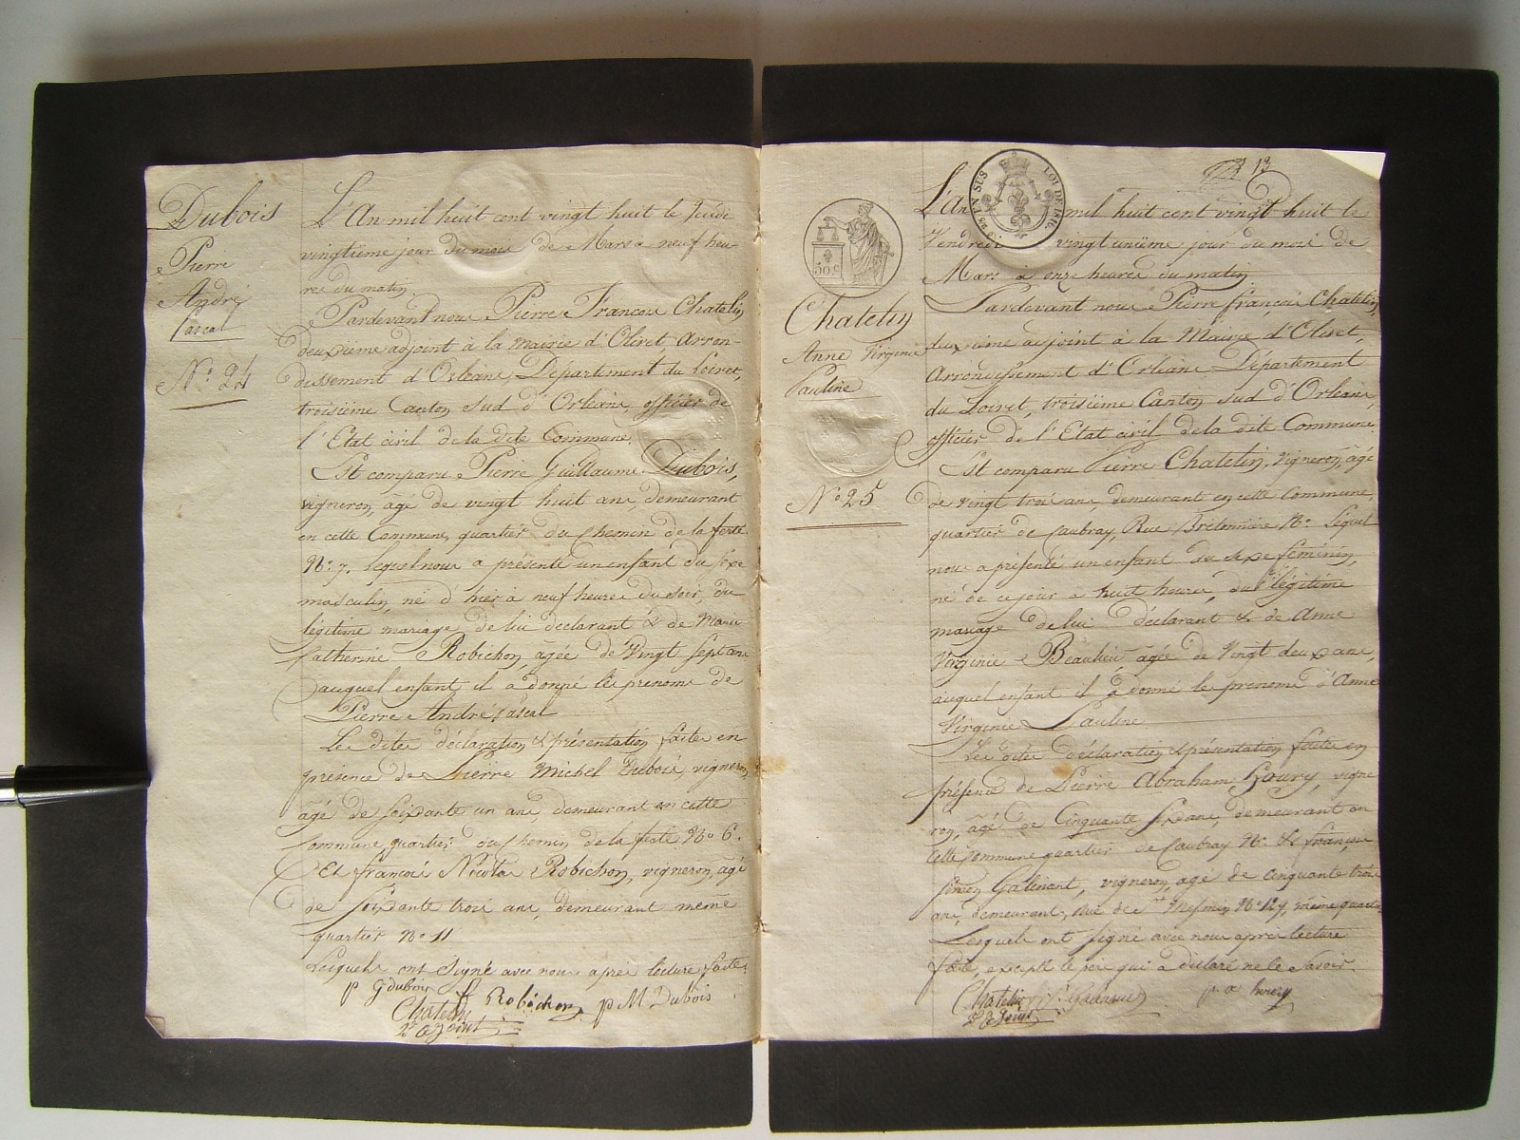 Dubois
Pierre
André
Pascal
N.° 24
L'An mil huit cent vingt huit le Jeudi
vingtième jour du mois de Mars a neuf heu-
res du matin
Pardevant nous Pierre François Chatelin
deuxième adjoint à la Mairie d'Olivet, Arron-
dissement d'Orléans, Département du Loiret,
troisième Canton sud d'Orléans, officier de
l'Etat civil de la dite Commune
Est comparu Pierre Guillaume Dubois,
vigneron, âgé de vingt huit ans, demeurant
en cette Commune, quartier du Chemin de la ferté
N.° 7. lequel nous a présenté un enfant du sexe
masculin, né d'hier à neuf heures du soir, du
légitime mariage de lui déclarant & de Marie
Catherine Robichon, agée de Vingt Sept ans
auquel enfant il a donné les prenoms de
Pierre André Pascal
Les dites déclaration & présentation faites en
présence de Pierre Michel Dubois, vigneron,
âgé de soixante un ans, demeurant en cette
Commune, quartier du chemin de la ferté N.° 6.
Et françois Nicolas Robichon, vigneron, âgé
de soixante trois ans, demeurant même
quartier N.° 11
Lesquels ont signé avec nous après lecture faite.
p G dubois
Chatelin Robichon p M Dubois
2e adjoint
13
50 c
EN SUS
LOI DE 1816
Chatelin
Anne Virginie
Pauline
N.° 25
L'An mil huit cent vingt huit le
Vendredi vingt unième jour du mois de
Mars à onze heures du matin
Pardevant nous Pierre françois Chatelin,
deuxième adjoint à la Mairie d'Olivet,
Arrondissement d'Orléans Département
du Loiret, troisième Canton sud d'Orléans,
officier de l'Etat civil de la dite Commune
Est comparu Pierre Chatelin, vigneron, âgé
de vingt trois ans, demeurant en cette Commune,
quartier de Caubray, Rue Bretonnière N.° lequel
nous a présenté un enfant du sexe féminin,
né de ce jour à huit heures, du légitime
mariage de lui déclarant & de Anne
Virginie Beaulieu, agée de Vingt deux ans,
auquel enfant il a donné les prenoms d'Anne
Virginie Pauline
Les dites déclaration & présentation faites en
présence de Pierre Abraham Houry, vigne
ron, âgé de Cinquante six ans, demeurant en
cette Commune quartier de Caubray N.° & françois
Galinant, vigneron, agé de cinquante trois
ans, demeurant, Rue de St Mesmin N.° 129, même quartier,
Lesquels ont signé avec nous après lecture
faite, excepté le père qui a déclaré ne le savoir
Chatelin p a houry
2e adjoint